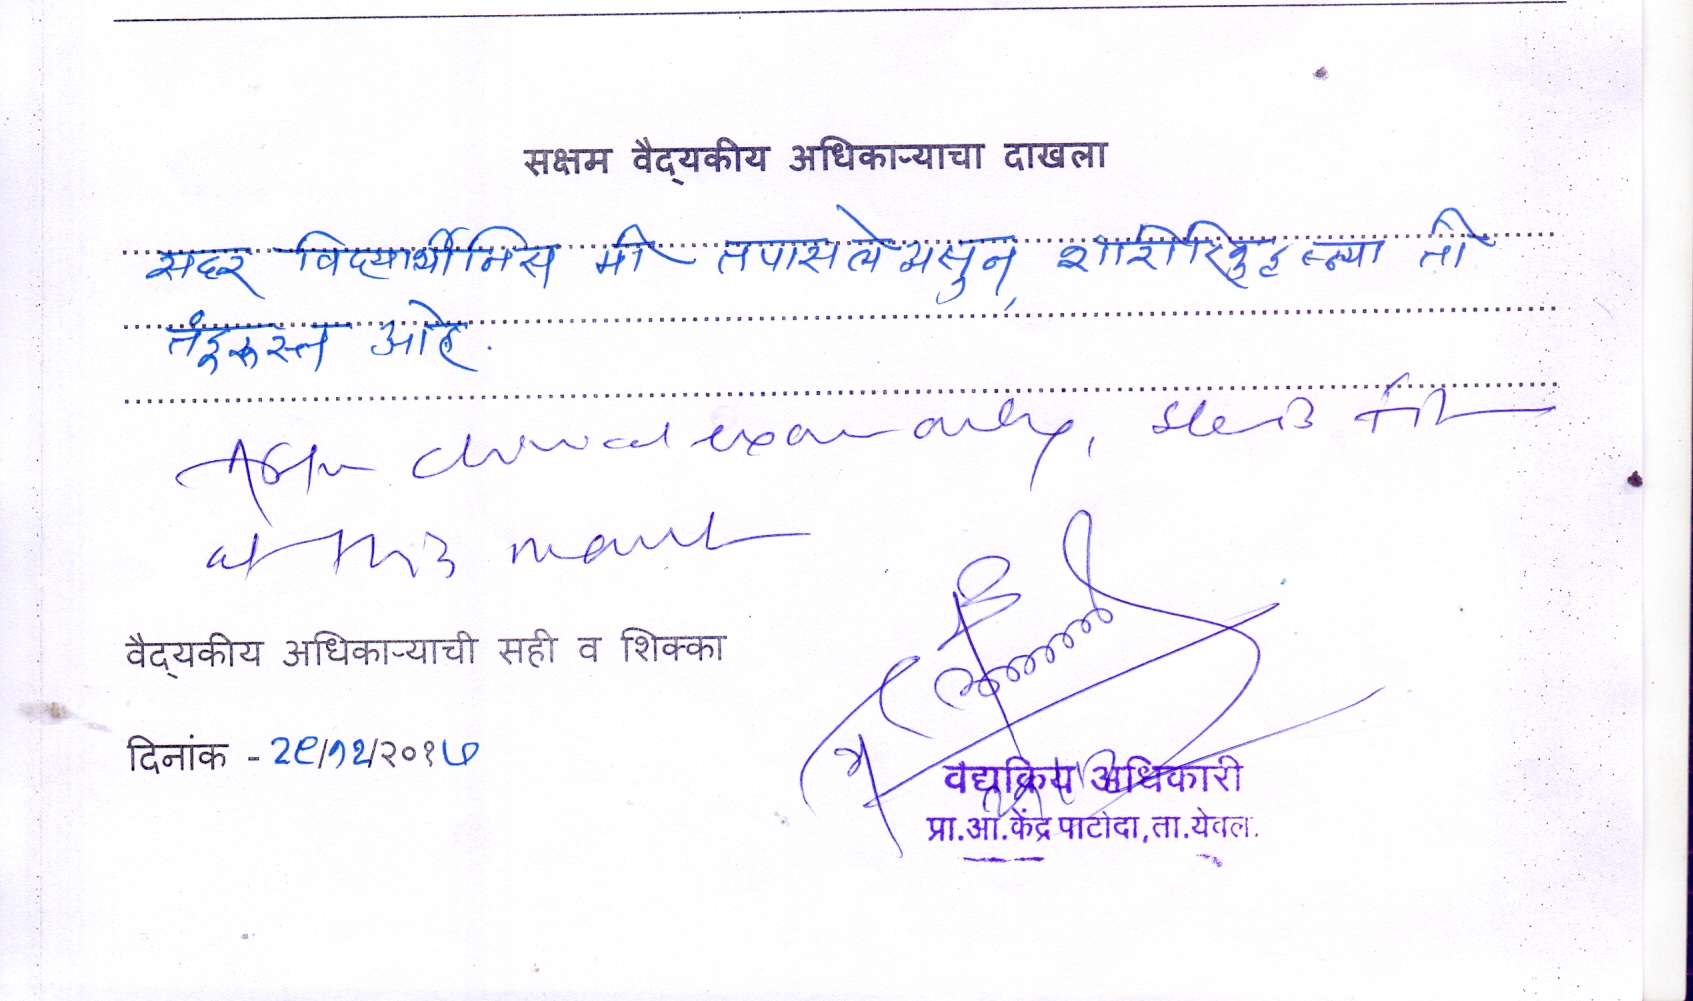 सक्षम वैद्यकीय अधिकाऱ्याचा दाखला
सदर विद्यार्थीनिस मी तपासले असुन, शारीरिकदृष्ट्या ती
तंदुरुस्त आहे.
After clinical examination, she is fit
at this moment
वैद्यकीय अधिकाऱ्याची सही व शिक्का
दिनांक - २९/१२/२०१७
वद्यकिय अधिकारी
प्रा.आ.केंद्र पाटोदा, ता.येवल.